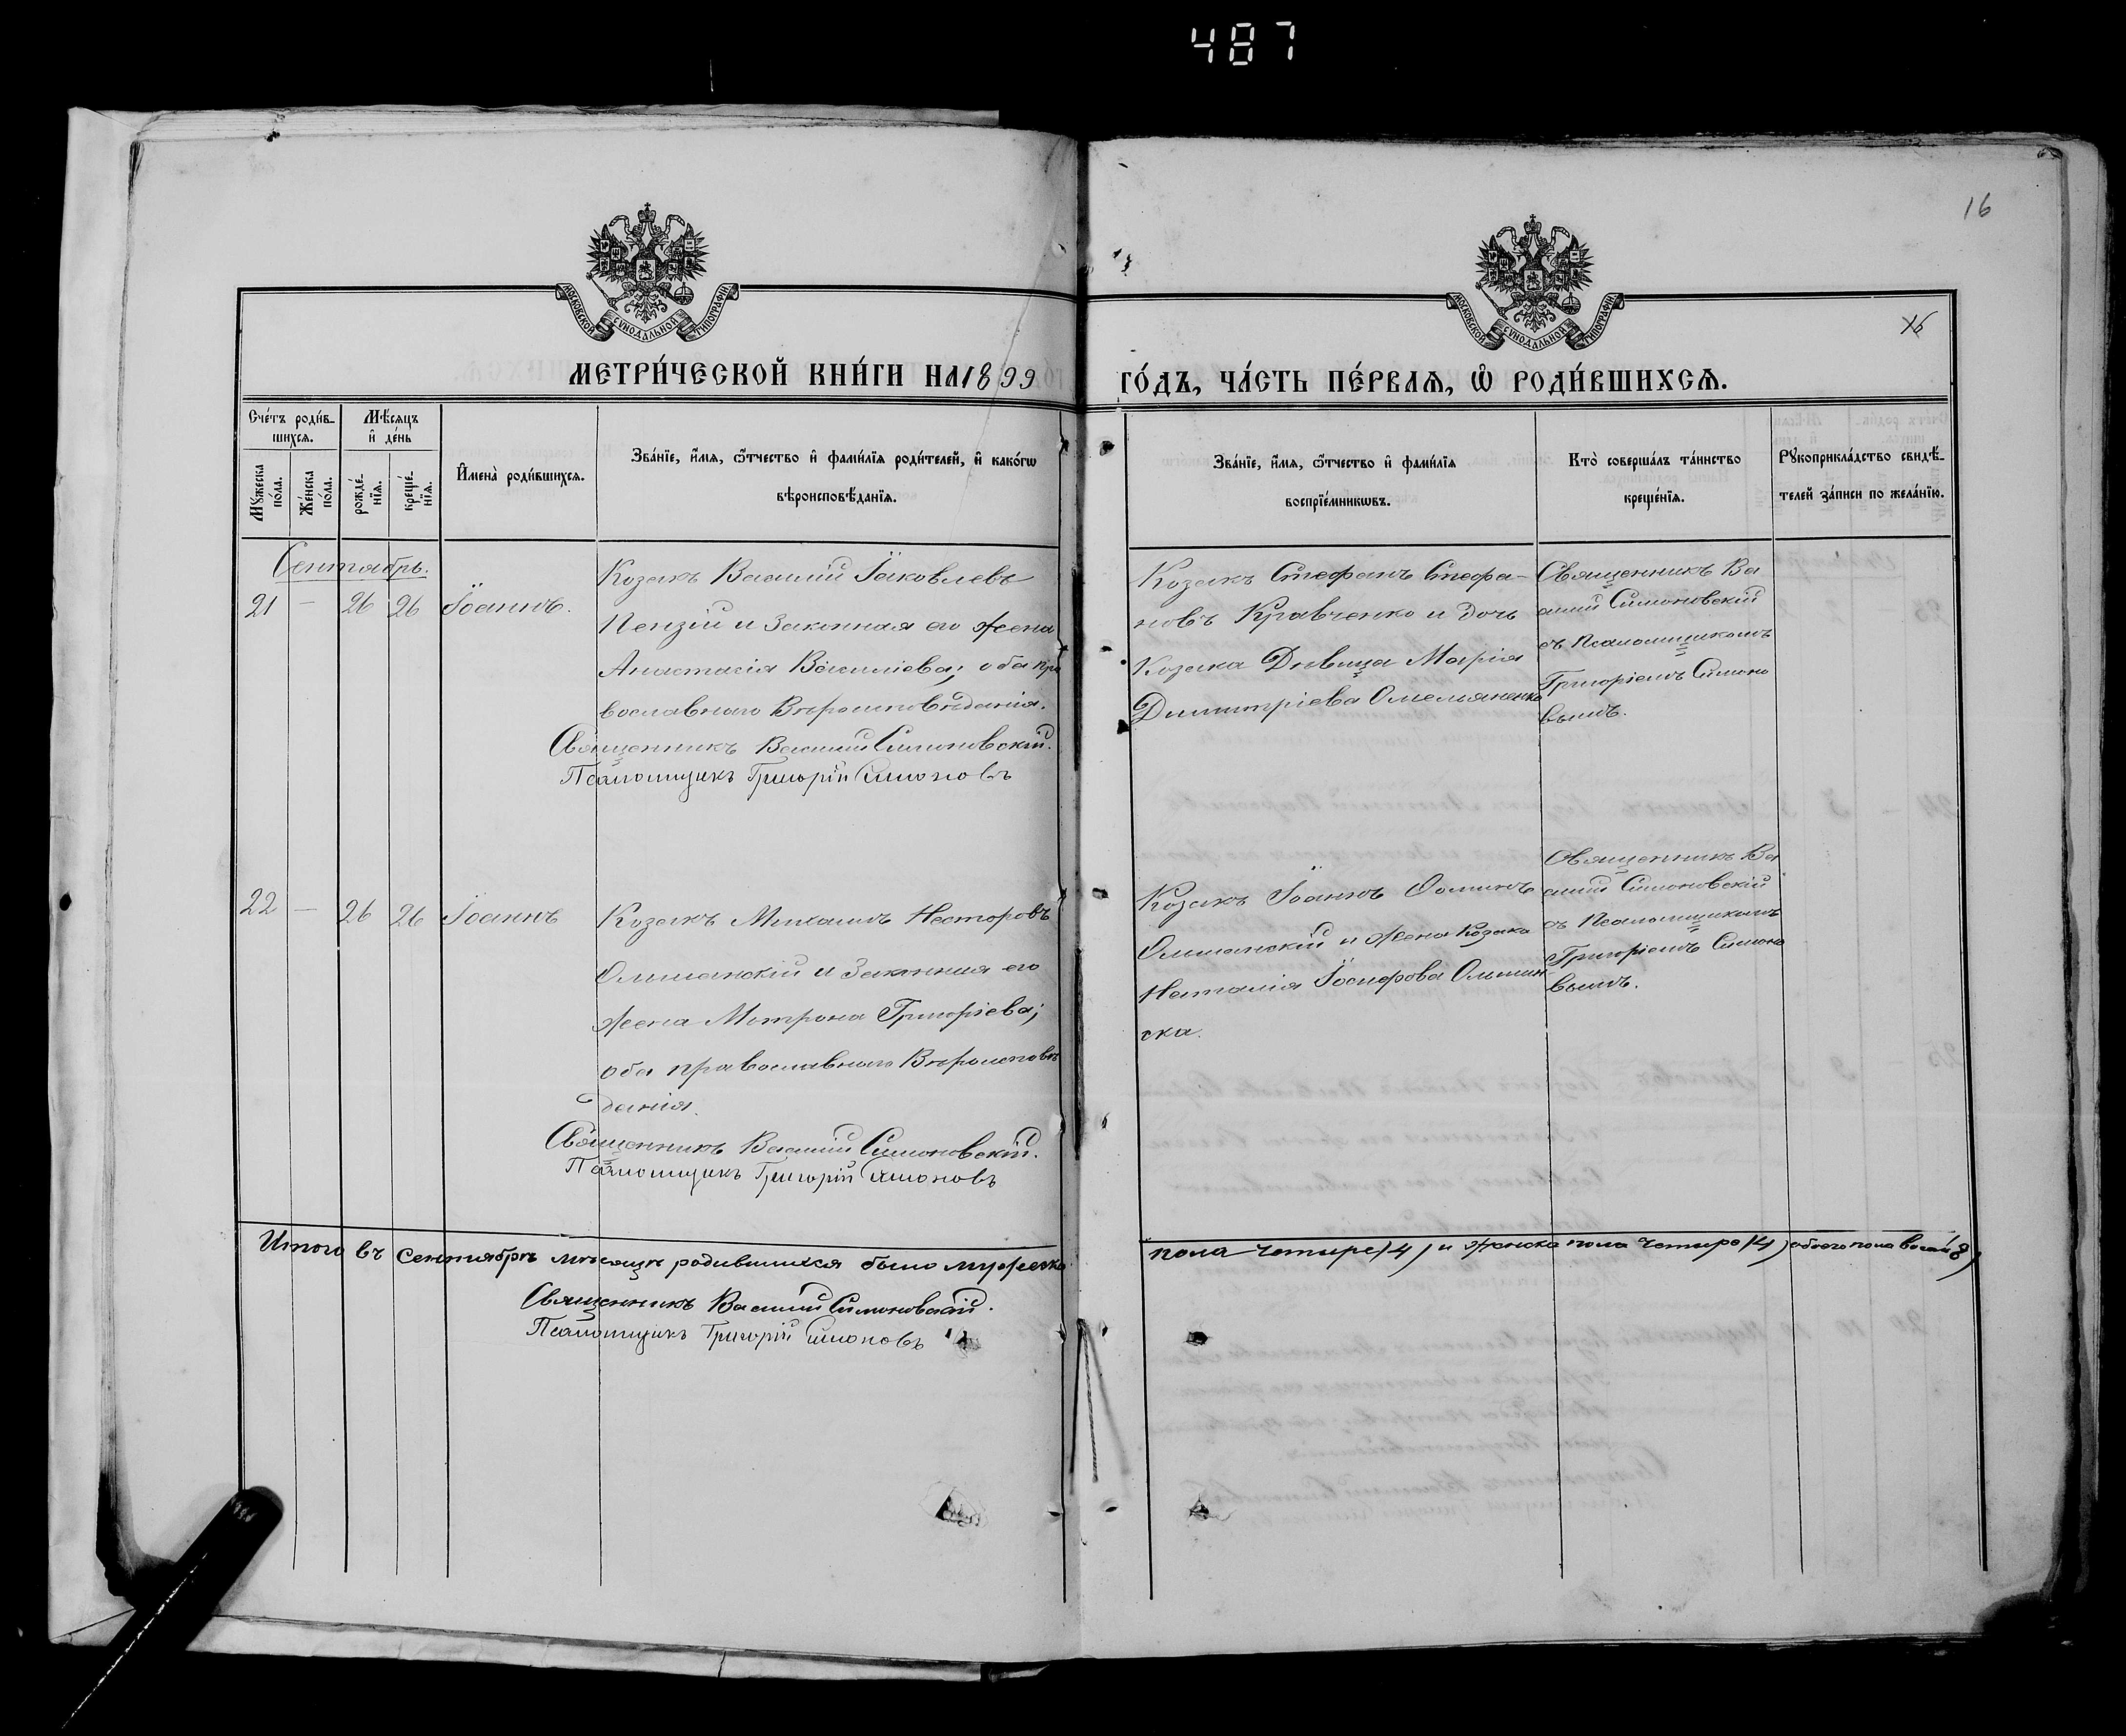 487
16
МОСКОВСКОЙ СУНОДАЛЬНОЙ ТИПОГРАФІИ
МОСКОВСКОЙ СУНОДАЛЬНОЙ ТИПОГРАФІИ
16
МЕТРИ́ЧЕСКОЙ КНИ́ГИ НА 1899 ГО́ДЪ, ЧА́СТЬ ПЕ́РВАЯ, Ѡ҆ РОДИ́ВШИХСЯ.
Сче́тъ роди́в-
шихся.
Мѣ́сяцъ
и҆ де́нь
Мꙋ́жеска
по́ла.
Же́нска
по́ла.
рожде́-
нїя.
креще́-
нїя.
И҆мена̀ роди́вшихся.
Зва́нїе, и҆́мя, ѻ҆́тчество и҆ фами́лїя роди́телей, и҆ како́гѡ
вѣроисповѣ́данїя.
Зва́нїе, и҆́мя, ѻ҆́тчество и҆ фами́лїя
воспрїе́мникѡвъ.
Кто̀ соверша́лъ та́инство
креще́нїя.
Рꙋкоприкла́дство свидѣ́-
телей за́писи по жела́нїю.
Сентябрь.
21 — 26 26 Іоаннъ.
Козакъ Василій Іаковлевъ
Пензій и Законная его жена
Анастасія Василіева; оба пра
вославнаго Вѣроисповѣданія.
Священникъ Василій Симоновскій.
Псаломщикъ Григорій Симоновъ
Козакъ Стефанъ Стефа-
новъ Кравченко и дочь
Козака Дѣвица Марія
Димитріева Омельяненко
Священникъ Ва
силій Симоновскій
съ Псаломщикомъ
Григоріемъ Симоно
вымъ.
22 — 26 26 Іоаннъ
Козакъ Михаилъ Несторовъ
Ольшанскій и Законная его
жена Мотрона Григоріева;
оба православнаго Вѣроисповѣ
данія.
Священникъ Василій Симоновскій.
Псаломщикъ Григорій Симоновъ
Козакъ Іоаннъ Фоминъ
Ольшанскій и жена Козака
Наталія Іосифова Ольшан
ска.
Священникъ Ва
силій Симоновскій
съ Псаломщикомъ
Григоріемъ Симоно
вымъ.
Итого въ Сентябрѣ мѣсяцѣ родившихся было мужеска пола четыре (4) и женска пола четыре (4) обоего пола восемь (8)
Священникъ Василій Симоновскій.
Псаломщикъ Григорій Симоновъ